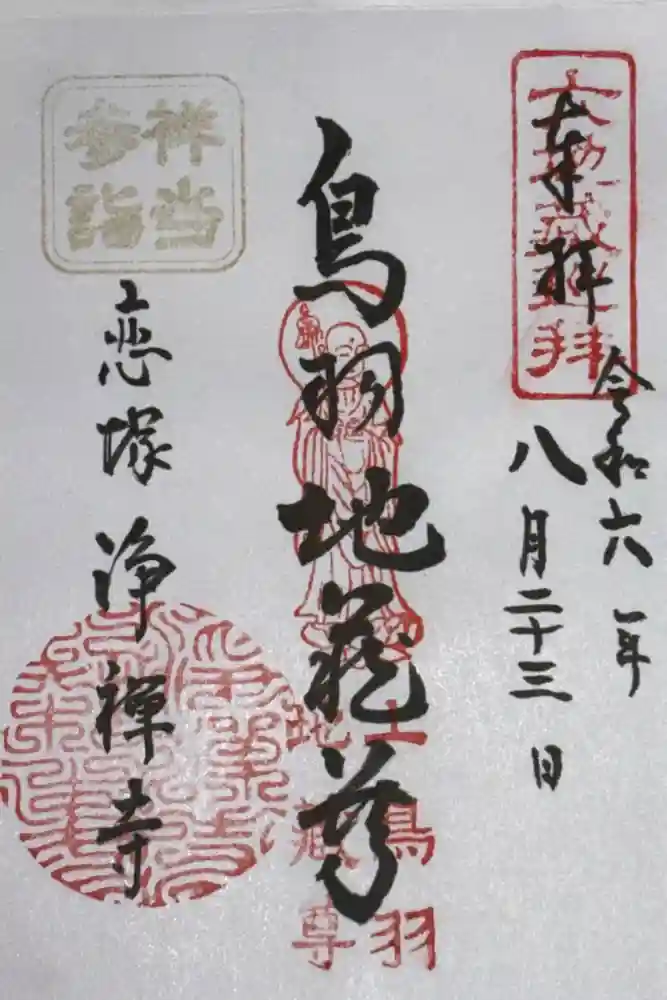 六地蔵巡拝
奉拝
令和六年
八月二十三日
鳥羽地蔵尊
上鳥羽
地蔵尊
祥当
参詣
恋塚 浄禅寺